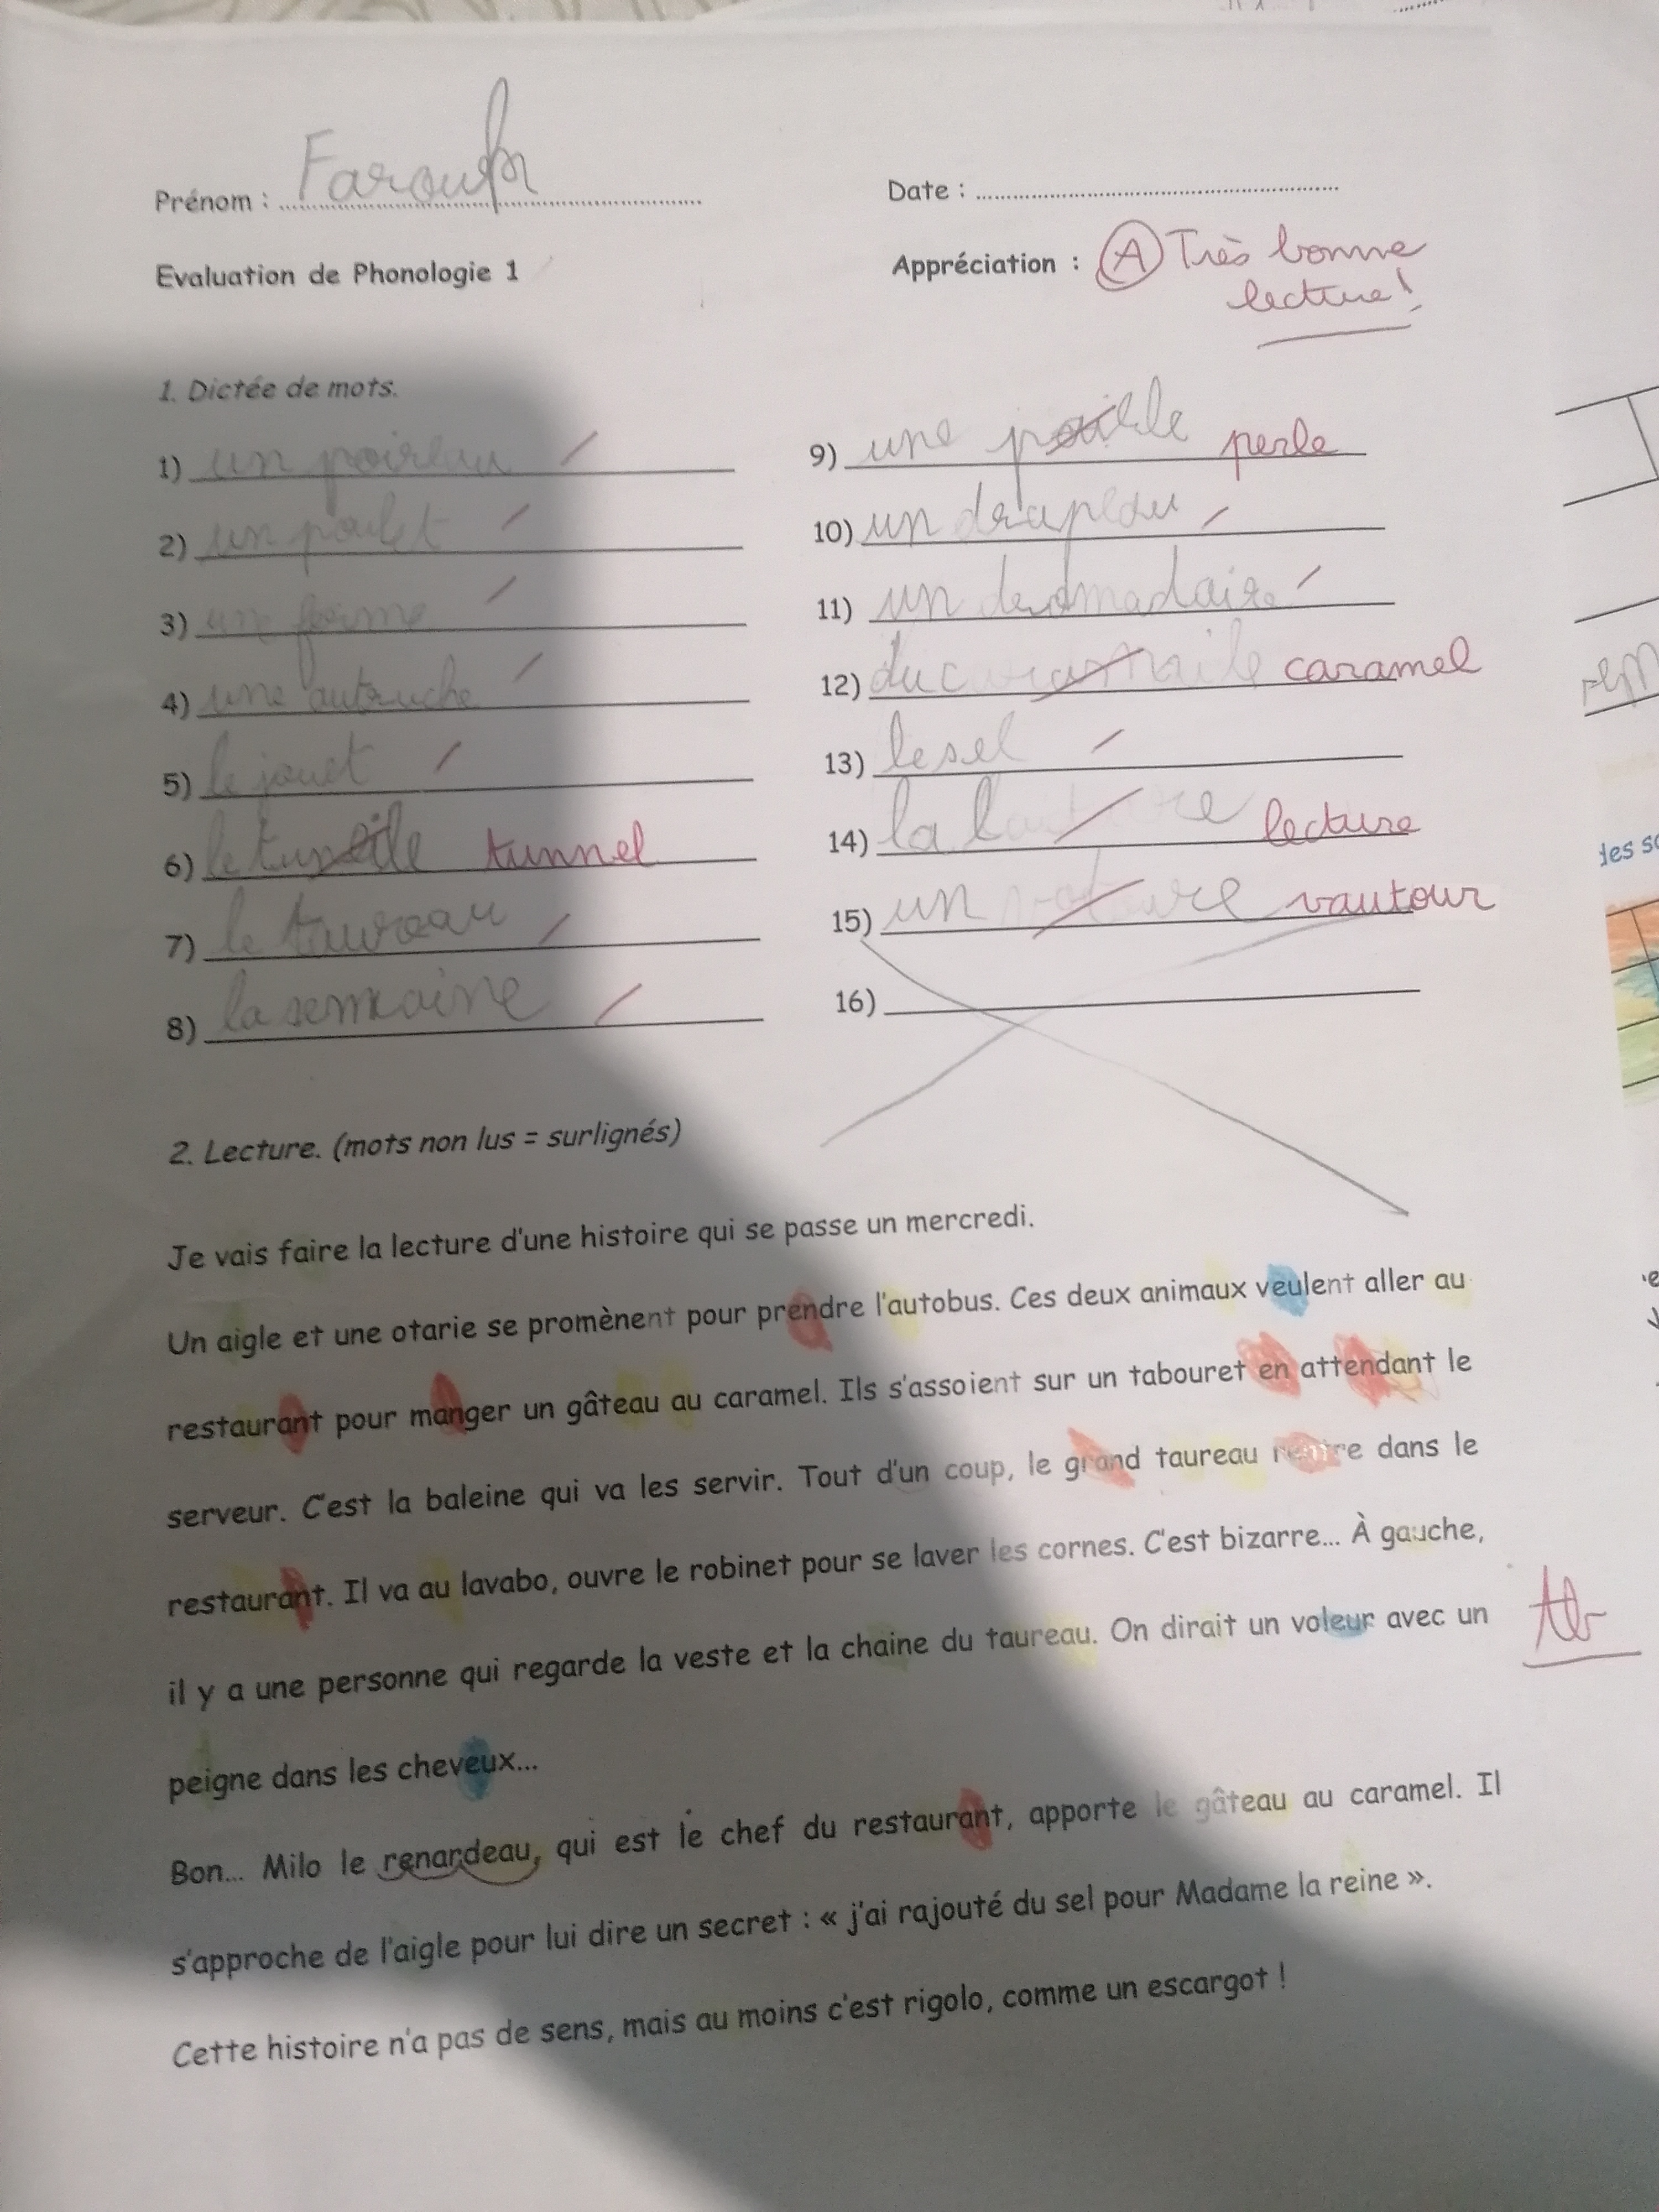 Prénom : Farouk
Date :
Evaluation de Phonologie 1
Appréciation : A Très bonne
lecture !
1. Dictée de mots.
1) un poireau
2) un poulet
3) une ferme
4) une autruche
5) le jouet
6) le tunnel
7) le taureau
8) la semaine
9) une perle
10) un drapeau
11) un dromadaire
12) du caramel
13) le sel
14) la lecture
15) un vautour
16)
2. Lecture. (mots non lus = surlignés)
Je vais faire la lecture d'une histoire qui se passe un mercredi.
Un aigle et une otarie se promènent pour prendre l'autobus. Ces deux animaux veulent aller au
restaurant pour manger un gâteau au caramel. Ils s'assoient sur un tabouret en attendant le
serveur. C'est la baleine qui va les servir. Tout d'un coup, le grand taureau rentre dans le
restaurant. Il va au lavabo, ouvre le robinet pour se laver les cornes. C'est bizarre... À gauche,
il y a une personne qui regarde la veste et la chaine du taureau. On dirait un voleur avec un
peigne dans les cheveux...
Bon... Milo le renardeau, qui est le chef du restaurant, apporte le gâteau au caramel. Il
s'approche de l'aigle pour lui dire un secret : « j'ai rajouté du sel pour Madame la reine ».
Cette histoire n'a pas de sens, mais au moins c'est rigolo, comme un escargot !